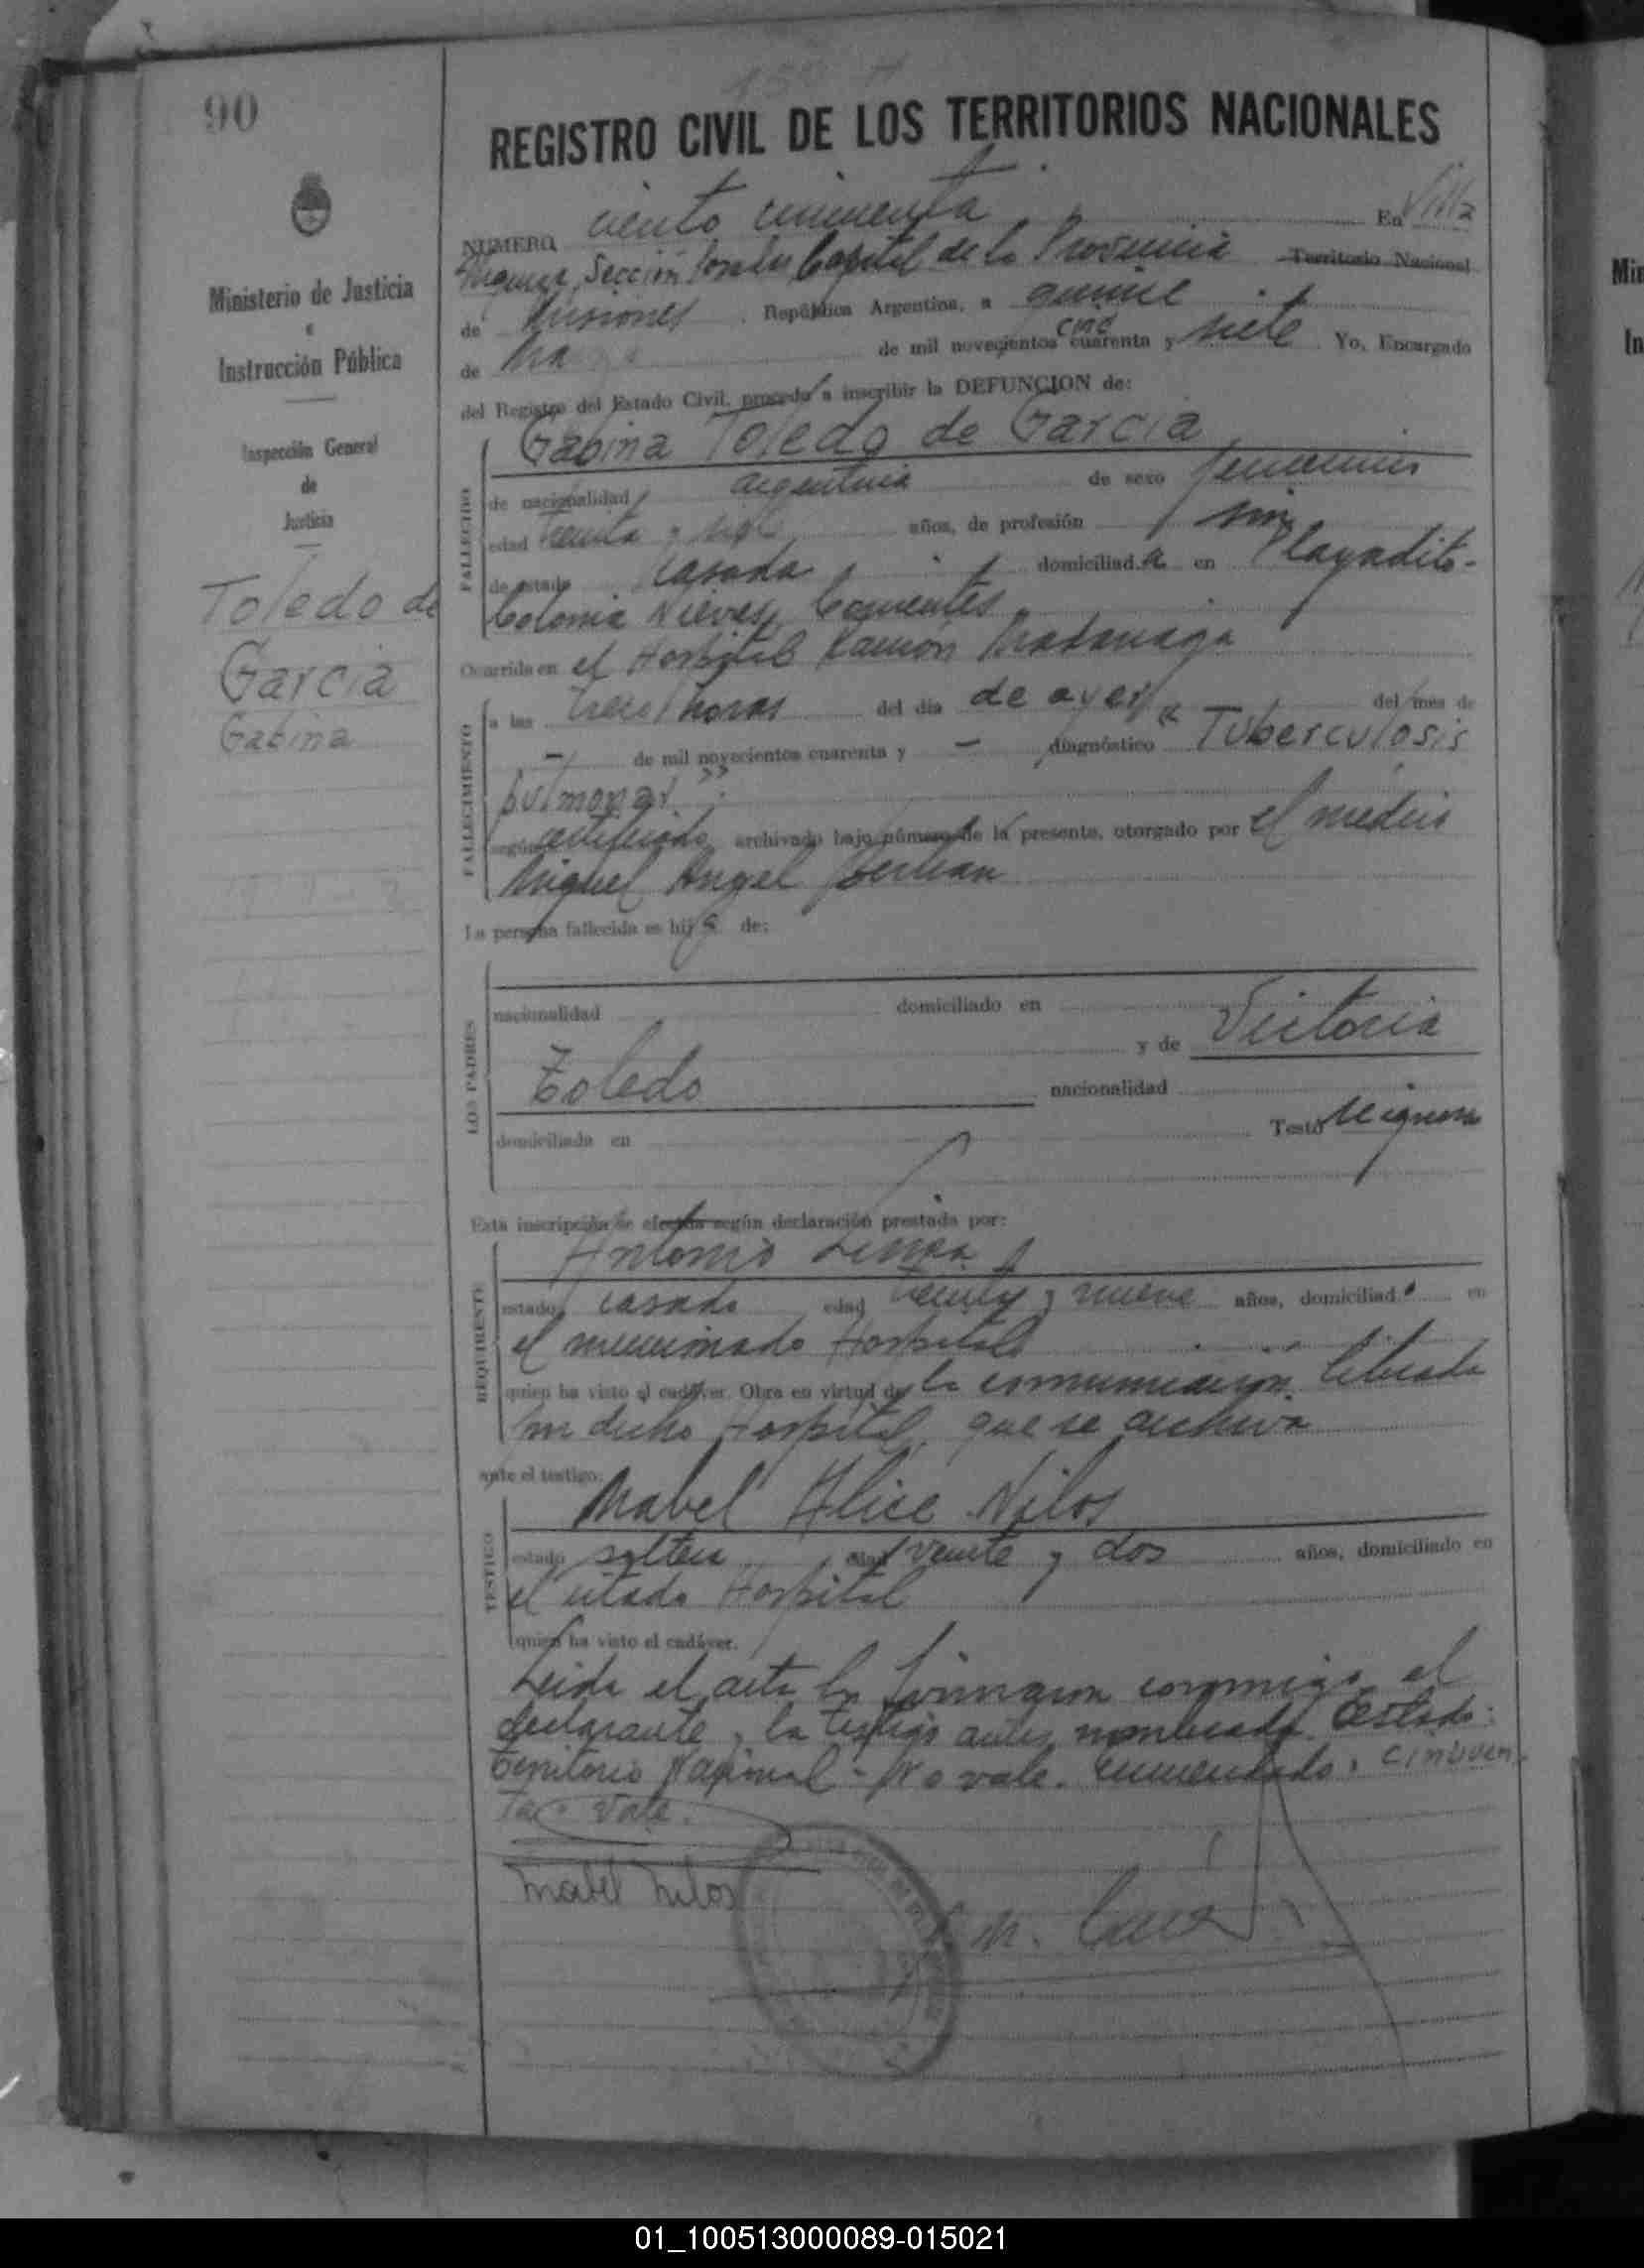 90
REGISTRO CIVIL DE LOS TERRITORIOS NACIONALES
Ministerio de Justicia
e
Instrucción Pública
Inspección General
de
Justicia
Toledo de
Garcia
Gabina
NUMERO ciento cincuenta En Villa
Sección Capital de la Provincia Territorio Nacional
de Misiones República Argentina, a quince
de de mil novecientos cuarenta cinc y siete Yo, Encargado
del Registro del Estado Civil, procedo a inscribir la DEFUNCION de:
Gabina Toledo de Garcia
FALLECIDO
de nacionalidad argentina de sexo femenino
edad treinta y años, de profesión sin
de estado casada domiciliad a en Playadito-
Colonia Nieves, Corrientes
Ocurrida en el Hospital Ramón Madariaga
FALLECIMIENTO
a las trece horas del día de ayer del mes de
- de mil novecientos cuarenta y - diagnóstico "Tuberculosis
pulmonar".
según certificado archivado bajo número de la presente, otorgado por el médico
Miguel Angel
La persona fallecida es hij a de:
LOS PADRES
nacionalidad domiciliado en
y de Victoria
Toledo nacionalidad
domiciliada en Testó
Esta inscripción se efectúa según declaración prestada por:
REQUIRENTE
Antonio
estado casado edad y nueve años, domiciliad o en
el mencionado Hospital
quien ha visto el cadáver. Obra en virtud de la comunicación librada
dicho Hospital, que se archiva
ante el testigo:
TESTIGO
Mabel Alice Nilos
estado soltera edad veinte y dos años, domiciliado en
el citado Hospital
quien ha visto el cadáver.
Leida el acta la firmaron conmigo el
declarante y la testigo antes nombrada. Testado:
Territorio Nacional - No vale. Enmendado: cincuen
ta - Vale.
Mabel Nilos
01_100513000089-015021